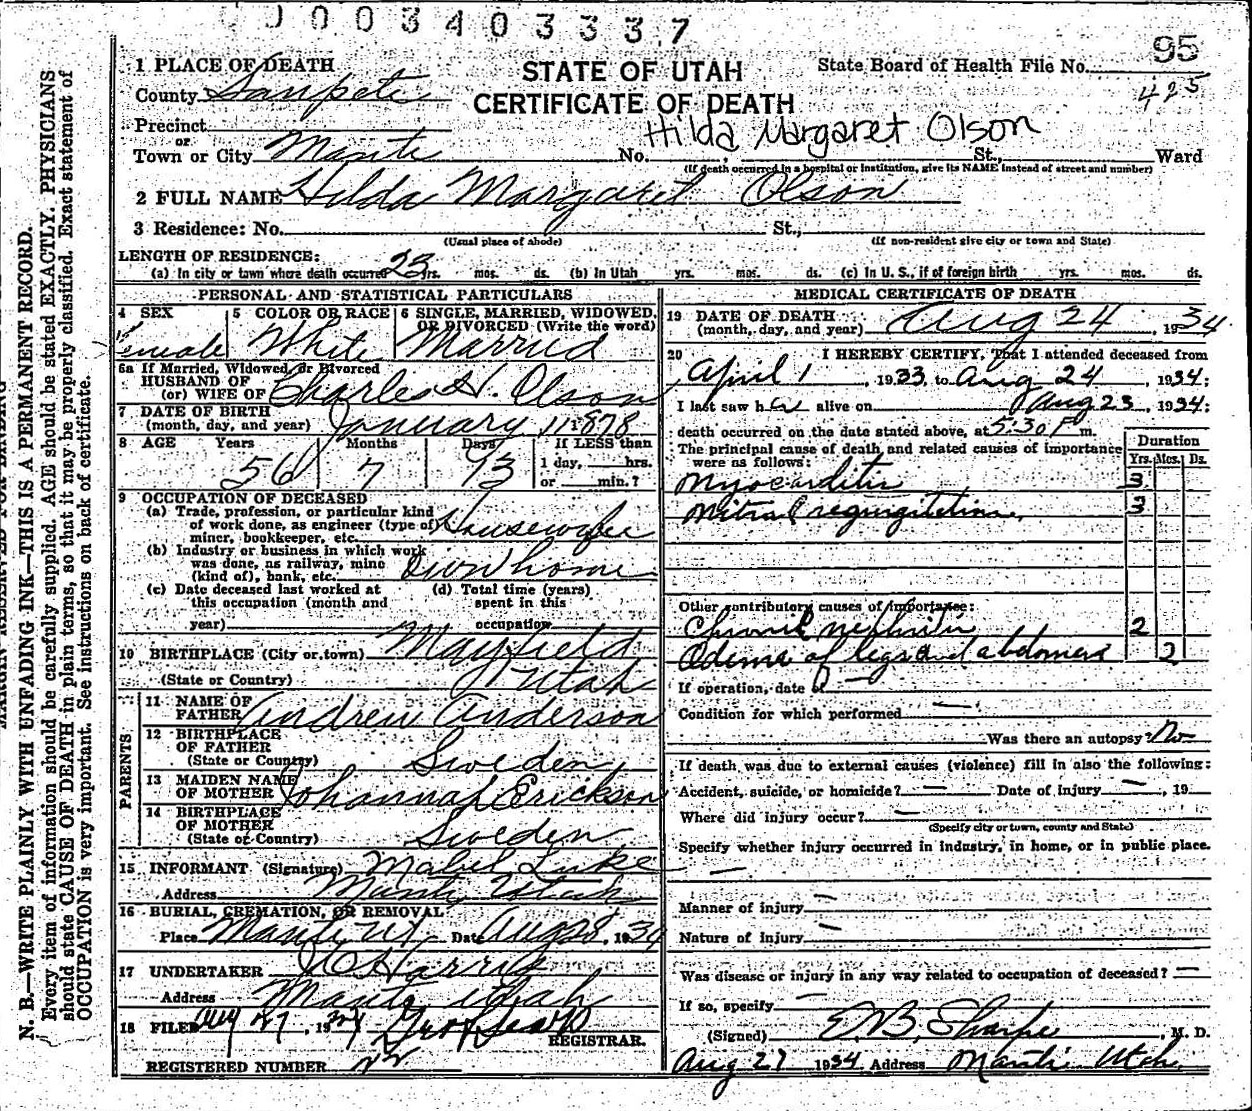 0003403337
95
1 PLACE OF DEATH
STATE OF UTAH
State Board of Health File No.
425
County Sanpete
CERTIFICATE OF DEATH
Precinct
or
Hilda Margaret Olson
Town or City Manti No. St., Ward
(If death occurred in a hospital or institution, give its NAME instead of street and number)
2 FULL NAME Hilda Margaret Olson
3 Residence: No. St.,
(Usual place of abode) (If non-resident give city or town and State)
LENGTH OF RESIDENCE:
(a) In city or town where death occurred 23 yrs. mos. ds. (b) In Utah yrs. mos. ds. (c) In U. S., if of foreign birth yrs. mos. ds.
PERSONAL AND STATISTICAL PARTICULARS
4 SEX 5 COLOR OR RACE 6 SINGLE, MARRIED, WIDOWED,
OR DIVORCED (Write the word)
Female White Married
6a If Married, Widowed, or Divorced
HUSBAND OF
(or) WIFE OF Charles H. Olson
7 DATE OF BIRTH
(month, day, and year) January 11 1878
8 AGE Years Months Days If LESS than
56 7 13 1 day, hrs.
or min.?
9 OCCUPATION OF DECEASED
(a) Trade, profession, or particular kind
of work done, as engineer (type of) Housewife
miner, bookkeeper, etc.
(b) Industry or business in which work
was done, as railway, mine Own home
(kind of), bank, etc.
(c) Date deceased last worked at (d) Total time (years)
this occupation (month and spent in this
year) occupation
10 BIRTHPLACE (City or town) Mayfield
(State or Country) Utah
PARENTS
11 NAME OF
FATHER Andrew Anderson
12 BIRTHPLACE
OF FATHER
(State or Country) Sweden
13 MAIDEN NAME
OF MOTHER Johannah Erickson
14 BIRTHPLACE
OF MOTHER
(State or Country) Sweden
15 INFORMANT (Signature) Mabel Luke
Address Manti Utah
16 BURIAL, CREMATION, OR REMOVAL
Place Manti Ut Date Aug 28, 1934
17 UNDERTAKER
Address Manti Utah
18 FILED Aug 27, 1934
REGISTRAR.
REGISTERED NUMBER
MEDICAL CERTIFICATE OF DEATH
19 DATE OF DEATH
(month, day, and year) Aug 24, 1934
20 I HEREBY CERTIFY, That I attended deceased from
April 1, 1933 to Aug 24, 1934;
I last saw her alive on Aug 23, 1934;
death occurred on the date stated above, at 5:30 P m.
The principal cause of death, and related causes of importance
were as follows:
Duration
Yrs. Mos. Ds.
Myocarditis 3
Mitral regurgitation. 3
Other contributory causes of importance:
Chronic nephritis 2
Odema of legs and abdomen 2
If operation, date of —
Condition for which performed —
Was there an autopsy? No
If death was due to external causes (violence) fill in also the following:
Accident, suicide, or homicide? — Date of injury —, 19
Where did injury occur? —
(Specify city or town, county and State)
Specify whether injury occurred in industry, in home, or in public place.
—
Manner of injury —
Nature of injury —
Was disease or injury in any way related to occupation of deceased? —
If so, specify —
(Signed) E. B. Sharpe, M. D.
Aug 27 1934 Address Manti Utah.
N. B.—WRITE PLAINLY WITH UNFADING INK—THIS IS A PERMANENT RECORD.
Every item of information should be carefully supplied. AGE should be stated EXACTLY. PHYSICIANS
should state CAUSE OF DEATH in plain terms, so that it may be properly classified. Exact statement of
OCCUPATION is very important. See instructions on back of certificate.